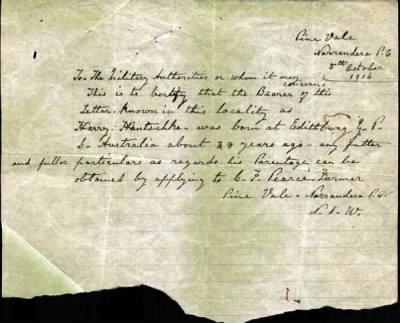 Pine Vale
Narrandera P.O
5th October
1916
To The Military Authorities or whom it may
concern
This is to Certify that the Bearer of this
Letter. Known in this locality as
Harry - Hantschke - was born at Edithburg Y. P.
S. Australia about 28 years ago - any futher
and fuller particulars as regards his Parentage can be
obtained by applying to C. F. Pearce. Farmer
Pine Vale - Narrandera P.O.
N. S. W.